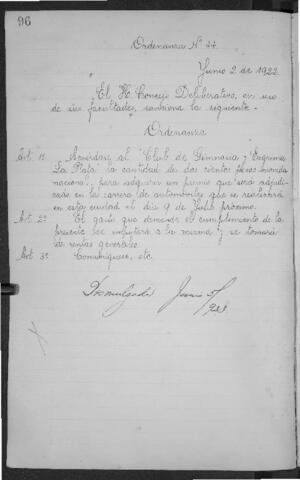 96
Ordenanza Nº 44
Junio 2 de 1922
"El H. Concejo Deliberativo, en uso
de sus facultades, sanciona la siguiente.-
"Ordenanza
Art. 1º Acuérdase al "Club de Gimnasia y Esgrima
La Plata" la cantidad de dos cientos pesos moneda
nacional, para adquirir un premio que será adjudi-
cado en las carreras de automóviles que se realizará
en esta ciudad el día 9 de Julio próximo.
Art. 2º El gasto que demande el cumplimiento de la
presente se imputará a la misma y se tomará
de rentas generales.
Art 3º Comuníquese, etc.
Promulgada Junio 5/
922